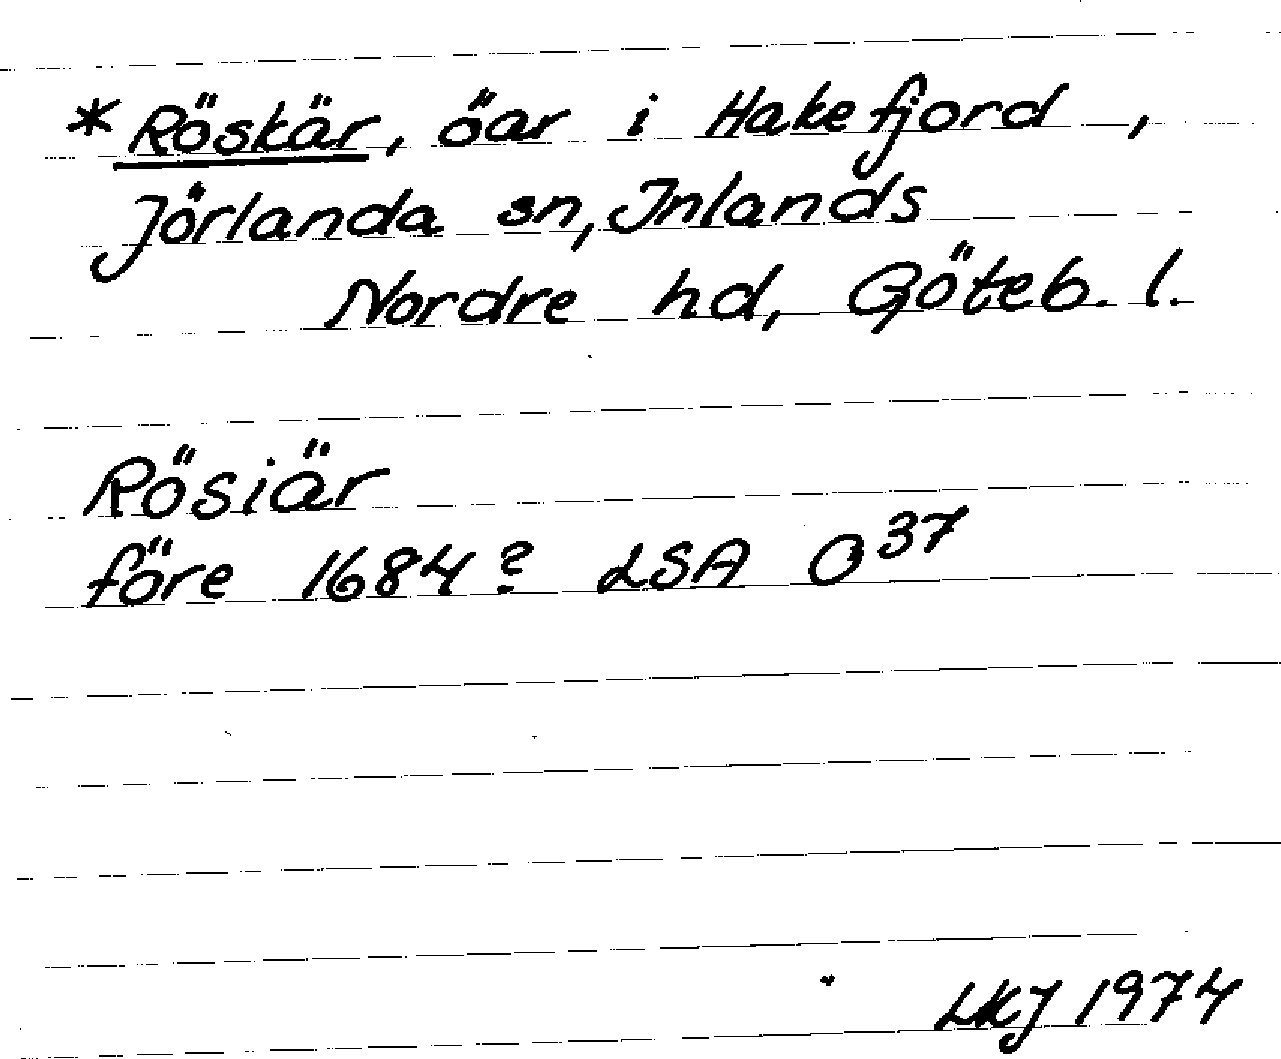 *Röskär, öar i Hakefjord,
Jörlanda sn, Inlands
Nordre hd, Göteb. l.
Rösiär
före 1684? LSA O³⁷
LKJ 1974